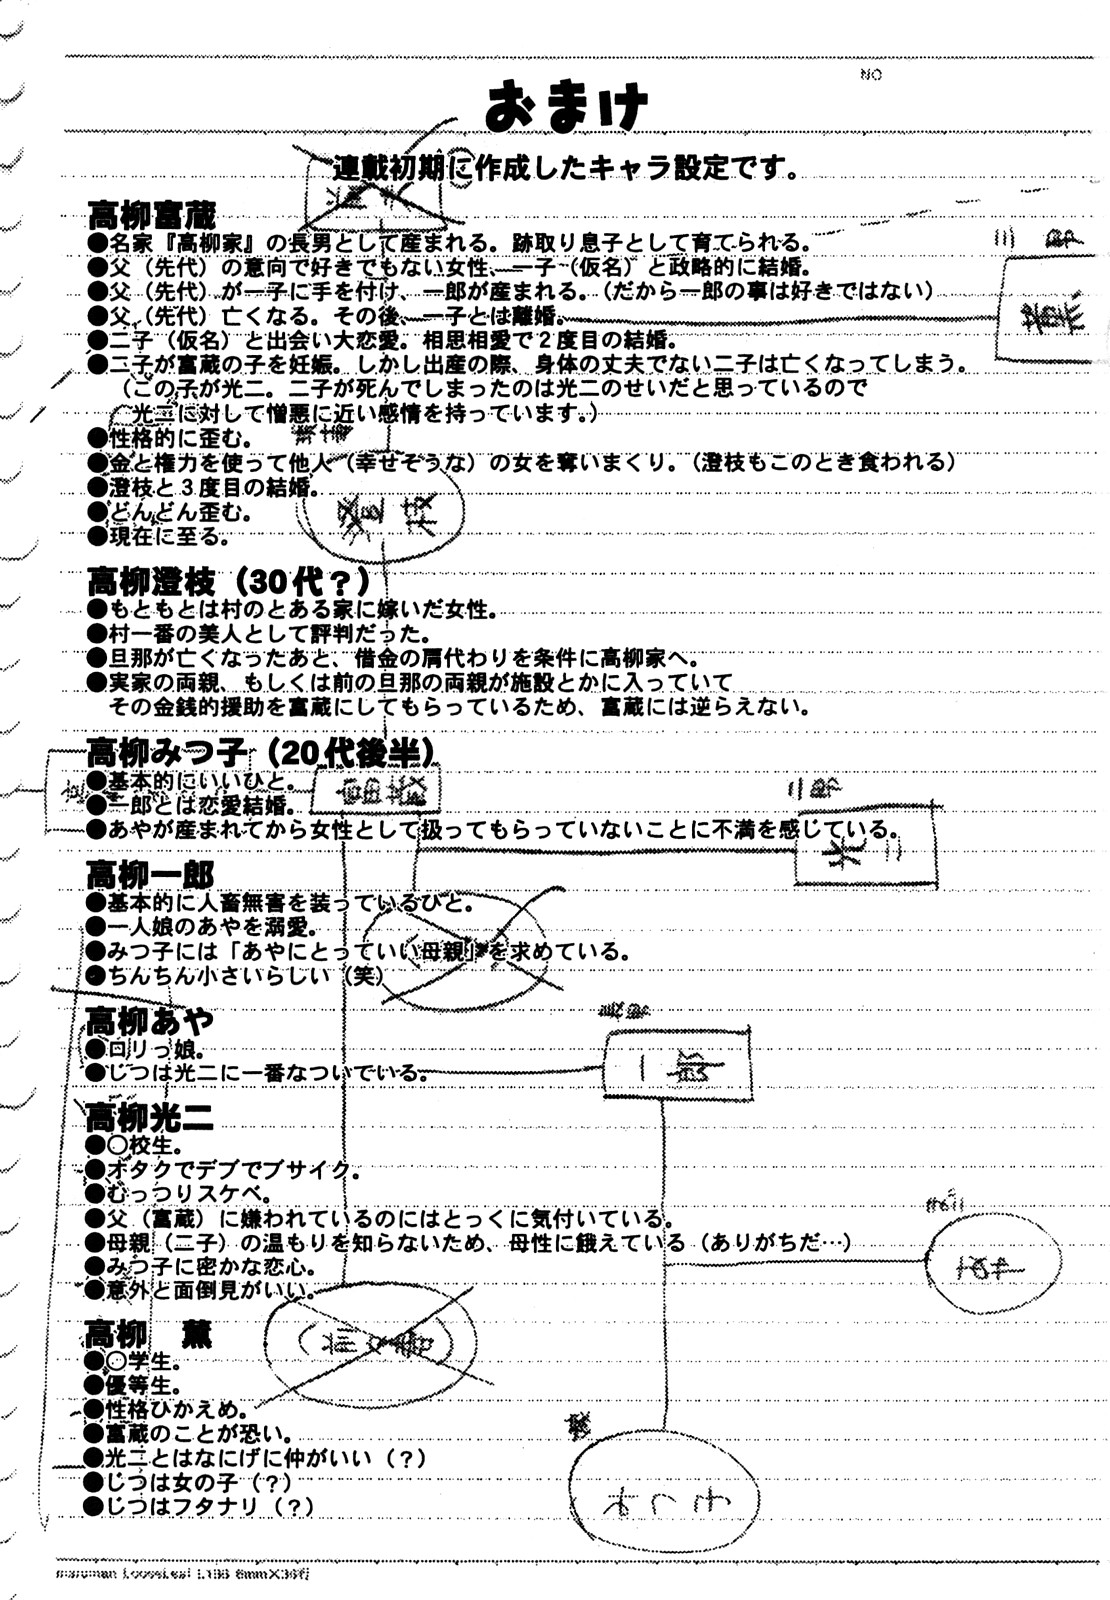 NO
おまけ
連載初期に作成したキャラ設定です。
高柳富蔵
●名家『高柳家』の長男として産まれる。跡取り息子として育てられる。
●父（先代）の意向で好きでもない女性、一子（仮名）と政略的に結婚。
●父（先代）が一子に手を付け、一郎が産まれる。（だから一郎の事は好きではない）
●父（先代）亡くなる。その後、一子とは離婚。
●二子（仮名）と出会い大恋愛。相思相愛で２度目の結婚。
●二子が富蔵の子を妊娠。しかし出産の際、身体の丈夫でない二子は亡くなってしまう。
（この子が光二。二子が死んでしまったのは光二のせいだと思っているので
光二に対して憎悪に近い感情を持っています。）
●性格的に歪む。
●金と権力を使って他人（幸せそうな）の女を奪いまくり。（澄枝もこのとき食われる）
●澄枝と３度目の結婚。
●どんどん歪む。
●現在に至る。
澄枝
高柳澄枝（30代？）
●もともとは村のとある家に嫁いだ女性。
●村一番の美人として評判だった。
●旦那が亡くなったあと、借金の肩代わりを条件に高柳家へ。
●実家の両親、もしくは前の旦那の両親が施設とかに入っていて
その金銭的援助を富蔵にしてもらっているため、富蔵には逆らえない。
高柳みつ子（20代後半）
●基本的にいいひと。
●一郎とは恋愛結婚。
●あやが産まれてから女性として扱ってもらっていないことに不満を感じている。
光二
高柳一郎
●基本的に人畜無害を装っているひと。
●一人娘のあやを溺愛。
●みつ子には「あやにとっていい母親」を求めている。
●ちんちん小さいらしい（笑）
高柳あや
●ロリっ娘。
●じつは光二に一番なついでいる。
一郎
高柳光二
●○校生。
●オタクでデブでブサイク。
●むっつりスケベ。
●父（富蔵）に嫌われているのにはとっくに気付いている。
●母親（二子）の温もりを知らないため、母性に餓えている（ありがちだ…）
●みつ子に密かな恋心。
●意外と面倒見がいい。
高柳　薫
●○学生。
●優等生。
●性格ひかえめ。
●富蔵のことが恐い。
●光二とはなにげに仲がいい（？）
●じつは女の子（？）
●じつはフタナリ（？）